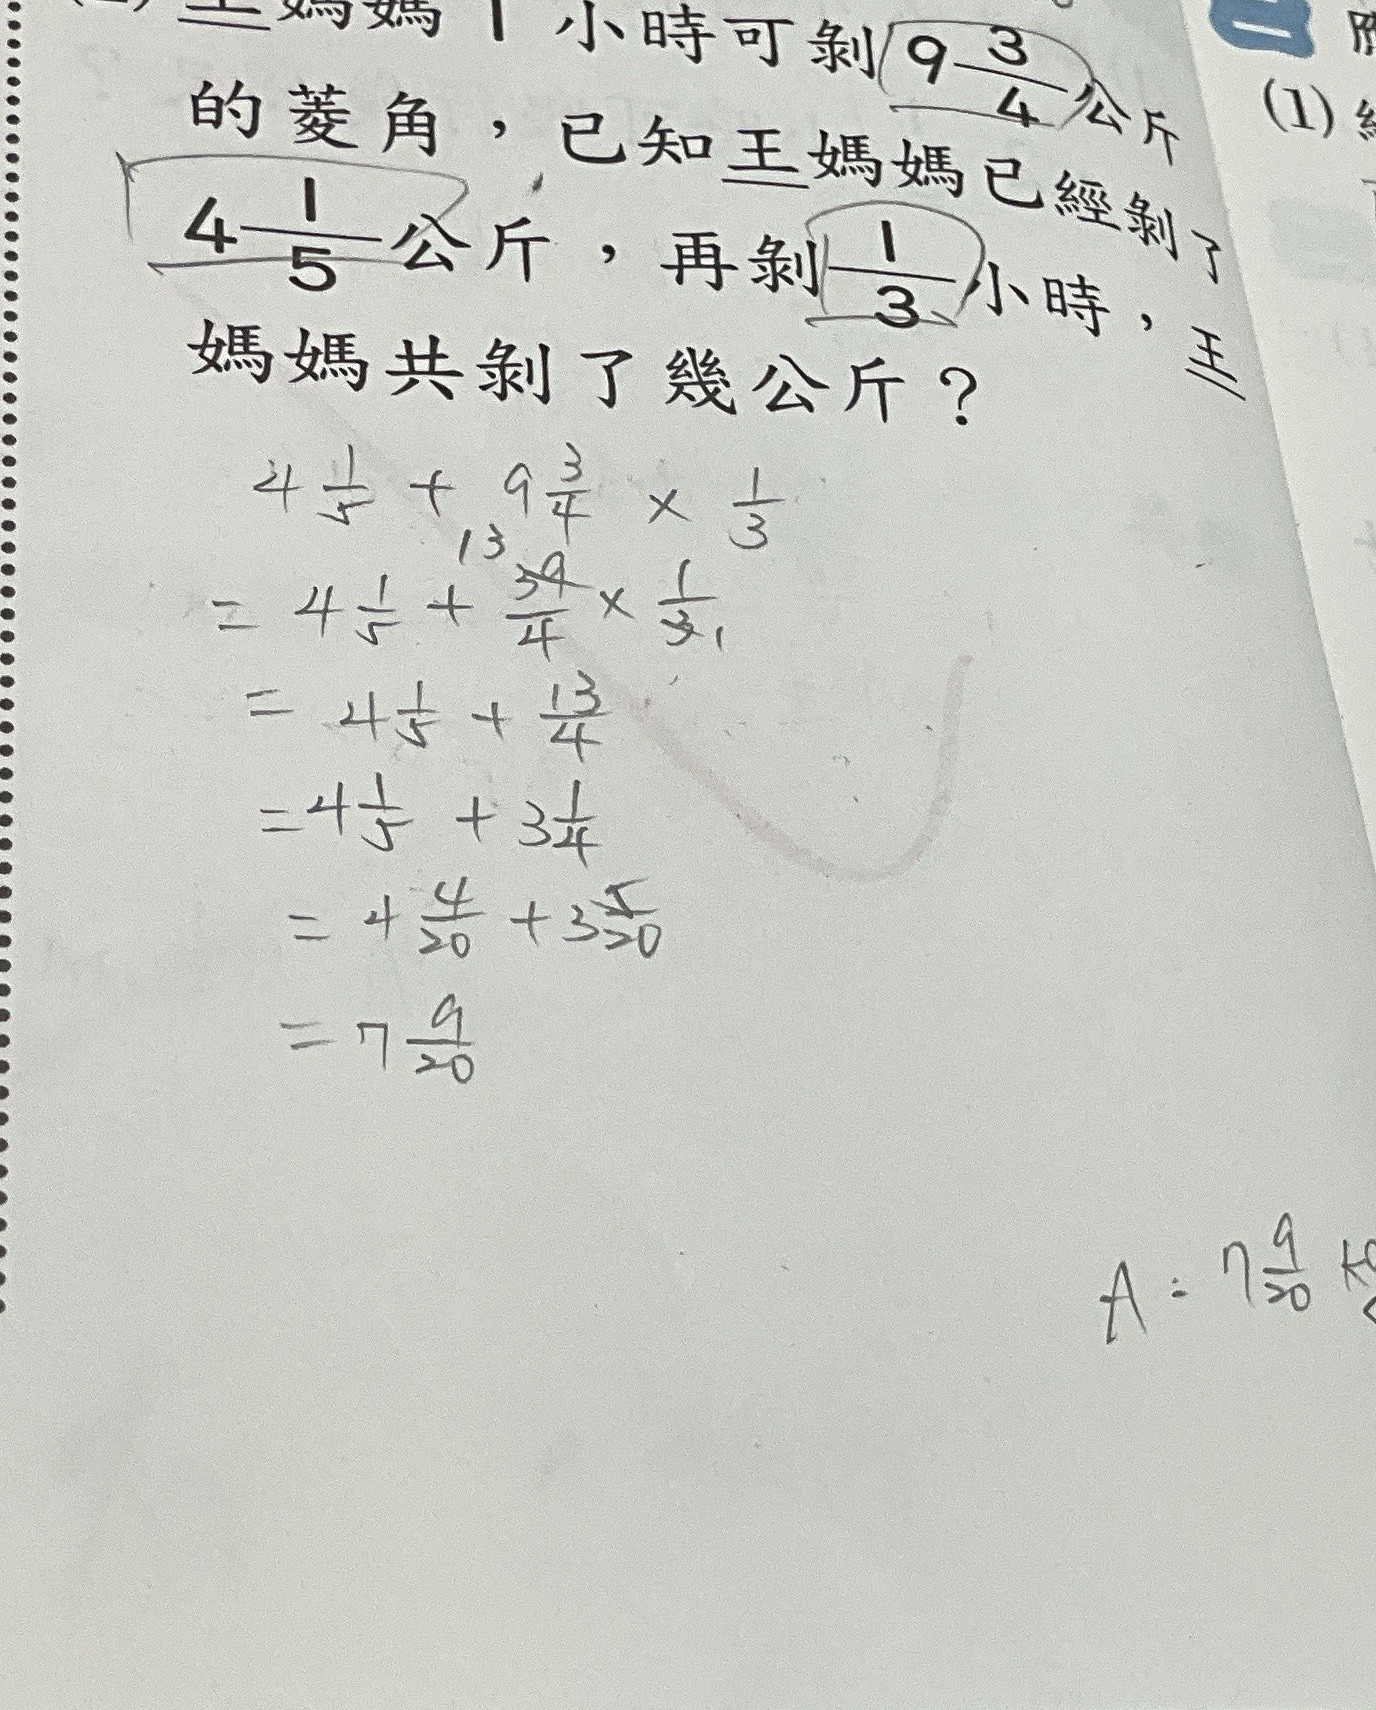 王媽媽1小時可剝9 3/4公斤
的菱角，已知王媽媽已經剝了
4 1/5公斤，再剝1/3小時，王
媽媽共剝了幾公斤？
4 1/5 + 9 3/4 × 1/3
13
= 4 1/5 + 39/4 × 1/3 1
= 4 1/5 + 13/4
= 4 1/5 + 3 1/4
= 4 4/20 + 3 5/20
= 7 9/20
A: 7 9/20
(1)